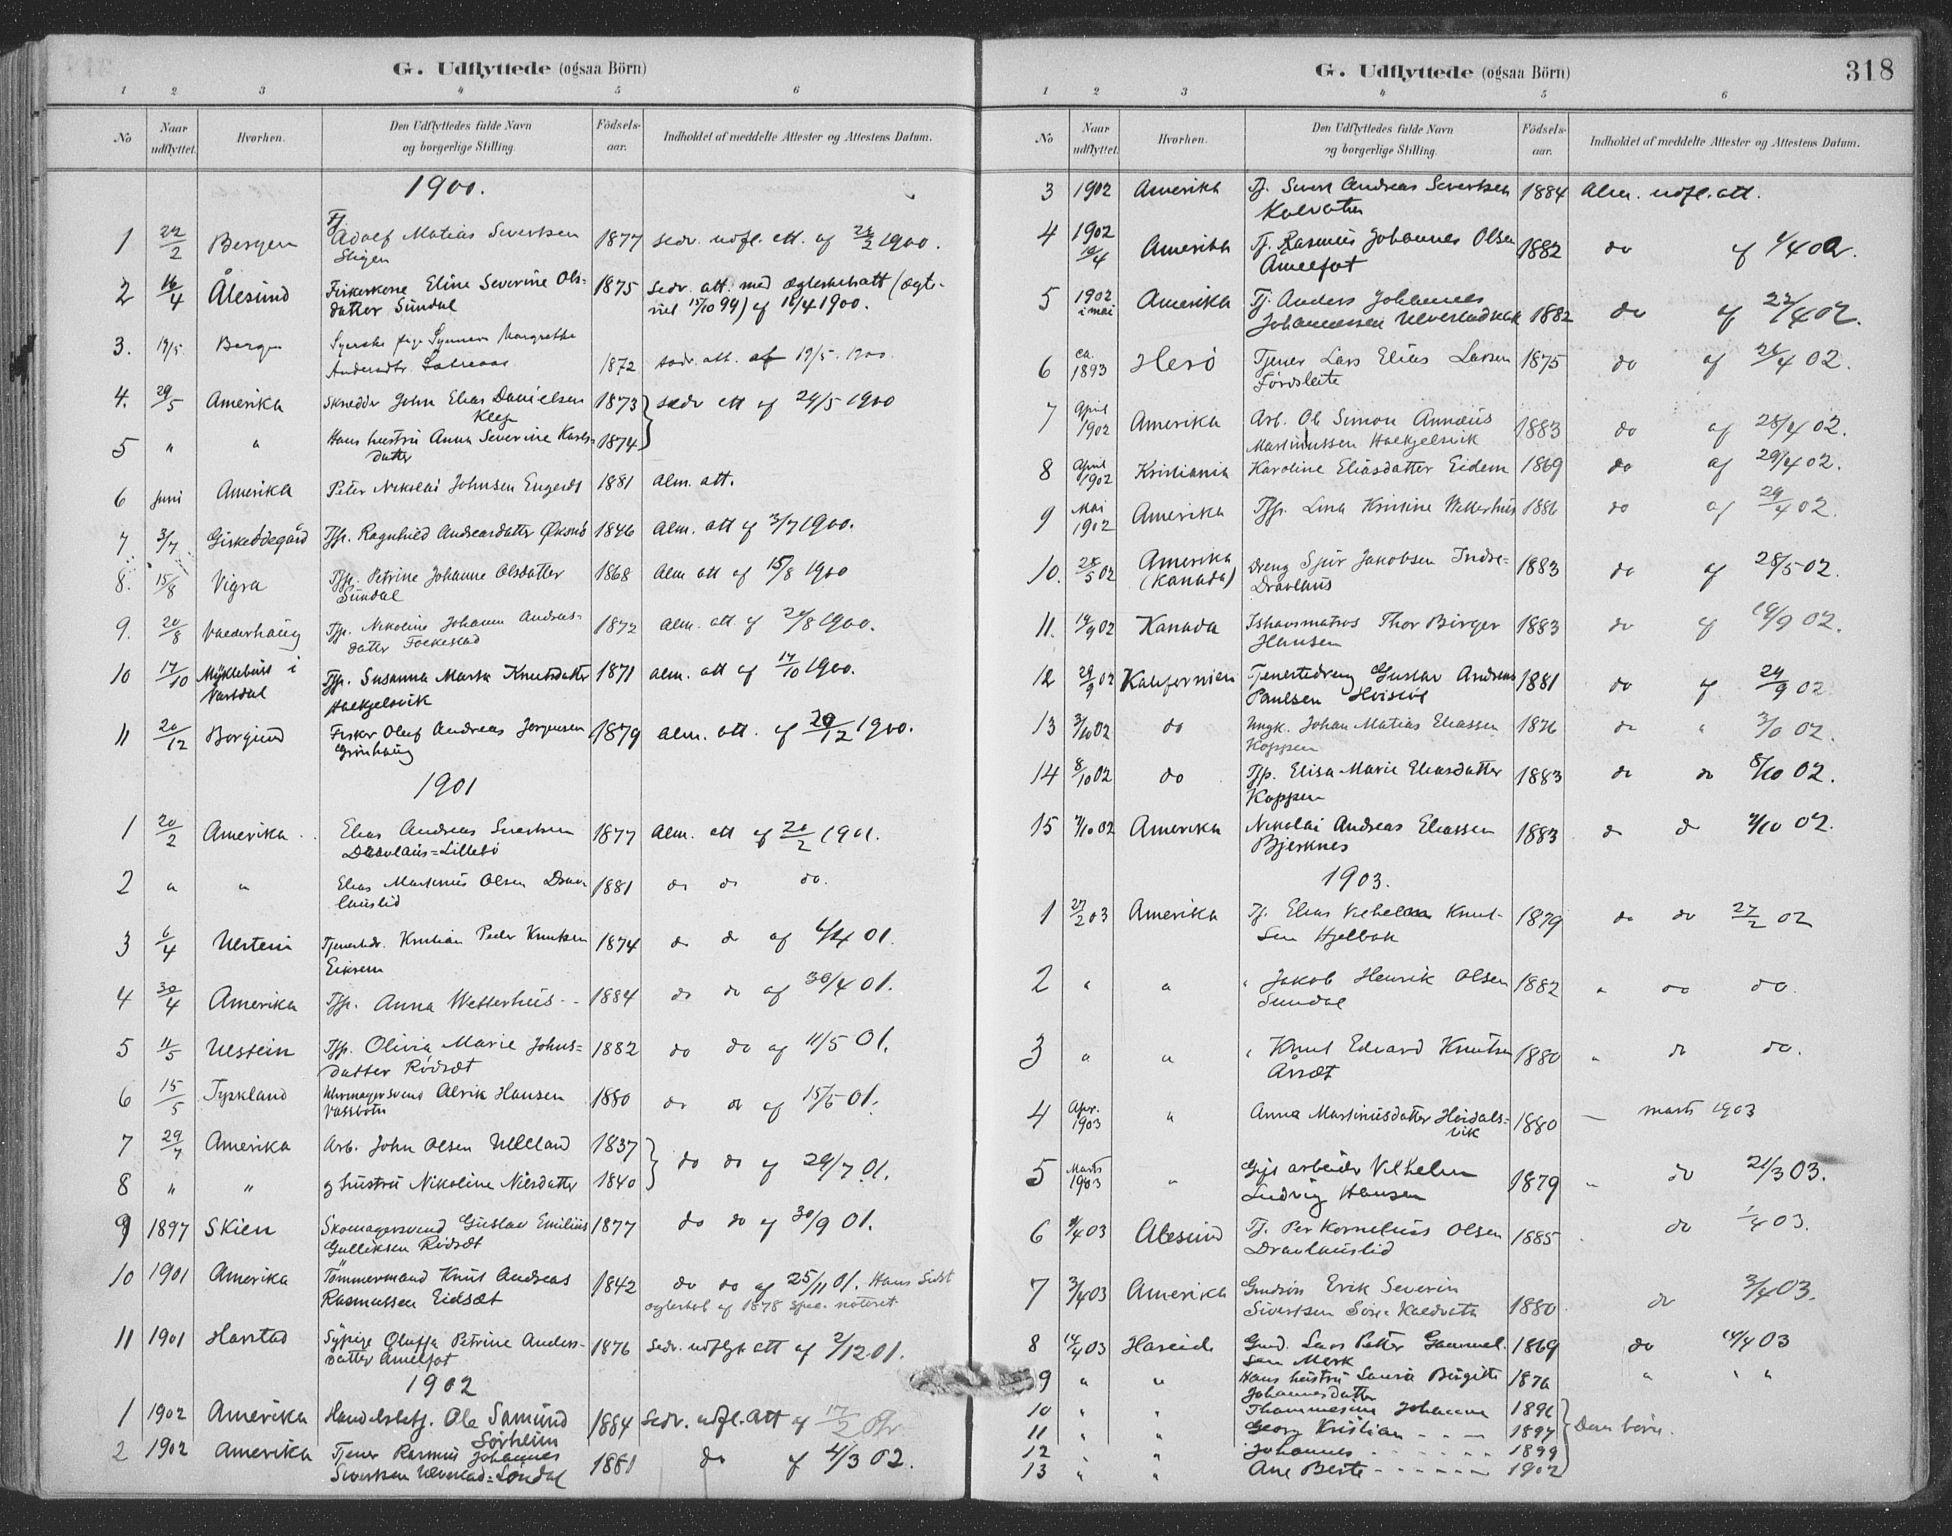 G. Udflyttede (ogsaa Börn)
1 2 3 4 5 6
No Naar udflyttet. Hvorhen. Den Udflyttedes fulde Navn og borgerlige Stilling. Födsels-aar. Indholdet af meddelte Attester og Attestens Datum.
1900.
1 22/2 Bergen Fj Adolf Matias Sivertsen 1877 sedv. udfl. att. af 22/2 1900.
2 16/4 Ålesund Fiskerkone Eline Severine Ols-
datter Sundal 1875 sedv. att. med ægteskabsatt (ægte-
viet 15/10 99) af 16/4 1900.
3. 19/5 Bergen Syerske pige Synnøve Margrethe
Andersdtr 1872 sedv. att. af 19/5. 1900.
4. 29/5 Amerika Skredder John Elias Danielsen
Klep 1873 sedv att af 29/5 1900
5 " " Hans hustru Anna Severine Karls-
datter 1874
6 juni Amerika Peter Nikolai Johnsen Engeset 1881 alm. att.
7 3/7 Giskeødegård Tjp. Ragnhild Andreasdatter Øksnø 1846 alm. att af 3/7 1900.
8. 15/8 Vigra Tjp. Petrine Johanne Olsdatter
Sundal 1868 Alm att af 15/8 1900
9. 20/8 Valderhaug Tjp. Nikoline Johanne Andreas-
datter Folkestad 1872 alm. att af 20/8 1900.
10 17/10 Myklebust i
Vartdal Tjp. Susanna Marta Knutsdatter
Hækjelsvik 1871 alm. att af 17/10 1900.
11 20/12 Borgund Fisker Oluf Andreas Jørgensen
Grønhaug 1879 alm. att. af 20/12 1900.
1901
1 20/2 Amerika Elias Andreas Sivertsen
Dravlaus=Lillebø 1877 Alm. att af 20/2 1901.
2 " " Elias Martinus Olsen Drav-
lauslid 1881 do do do.
3 6/4 Ulstein Tjenestedr. Kristian Peder Knutsen
Eiksem 1874 do do af 6/4 01.
4 30/4 Amerika Tjp. Anna Wetterhus 1884 do do af 30/4 01.
5 11/5 Ulstein Tjp. Olivia Marie Johns-
datter Rødsæt 1882 do do af 11/5 01.
6 15/5 Tyskland Uhrmagersvend Alrik Hansen
Vassbotn 1880 do do af 15/5 01.
7 29/7 Amerika Arb. John Olsen Ulleland 1837 do do af 29/7 01.
8 " " og hustru Nikoline Nilsdatter 1840
9 1897 Skien Skomagersvend Gustav Emilius
Gulliksen Rødsæt 1877 do do af 30/9 01.
10 1901 Amerika Tömmermand Knut Andreas
Rasmussen Eidsæt 1842 do do af 25/11 01. Hans sidst
ægteskab af 1878 spec. noteret.
11 1901 Harstad Sypige Oluffa Petrine Anders-
datter Åmelfot 1876 Sedv. udflyt att af 2/12 01.
1902
1 1902 Amerika Handelsbetj. Ole Samund
Sörheim 1884 Sedv. udfl. att af 17/2
2 1902 Amerika Tjener Rasmus Johannes
Sivertsen Ulvestad=Løndal 1881 do af 4/3 02.
318
G. Udflyttede (ogsaa Börn)
1 2 3 4 5 6
No Naar udflyttet. Hvorhen. Den Udflyttedes fulde Navn og borgerlige Stilling. Födsels-aar. Indholdet af meddelte Attester og Attestens Datum.
3 1902 Amerika Tj. Sivert Andreas Sivertsen
Kalvatn 1884 Alm. udfl. att.
4 1902
16/4 Amerika Tj. Rasmus Johannes Olsen
Åmelfot 1882 do af 1/4 02.
5 1902
i mai Amerika Tj. Anders Johannes
Johannessen Ulvestadbak 1882 do af 22/4 02.
6 ca.
1893 Herø Tjener Lars Elias Larsen
Førdsleite 1875 do af 26/4 02.
7 April
1902 Amerika Arb. Ole Simon Annæus
Martinussen Hækjelsvik 1883 do af 28/4 02.
8 April
1902 Kristiania Karoline Eliasdatter Eidem 1869 do af 29/4 02.
9 Mai
1902 Amerika Tjp. Lina Kristine Wetterhus 1886 do af 29/4 02.
10. 28/5 02 Amerika
(Kanada) Dreng Sjur Jakobsen Indre-
Dravlaus 1883 do af 28/5 02.
11. 19/9 02 Kanada Ishavsmatros Thor Birger
Hansen 1883 do af 19/9 02.
12 29/9 02 Kalifornien Tjenestedreng Gustav Andreas
Paulsen 1881 do af 29/9 02.
13 3/10 02 do Ungk. Johan Matias Eliassen
Koppen 1876 do " 3/10 02.
14 8/10 02 do Tjp. Elisa Marie Eliasdatter
Koppen 1883 do do 8/10 02.
15 /10 02 Amerika Nikolai Andreas Eliassen
Bjerknes 1883 do do /10 02.
1903.
1 27/2 03 Amerika Tj. Elias Vilhelm Knut-
sen Hjelbak 1879 do do 27/2 02
2 " " " Jakob Henrik Olsen
Sundal 1882 " do do.
3 " " " Knut Edvard Knutsen
Årsæt 1880 " do do.
4 Apr.
1903 " Anna Martinusdatter Høidals-
vik 1880 — marts 1903
5 Marts
1903 " Gift arbeider Vilhelm
Ludvig Hansen 1879 " do 21/3 03.
6 1/4 03 Ålesund Tj. Per Kornelius Olsen
Dravlauslid 1885 do 1/4 03.
7 3/4 03 Amerika Grudsøn Erik Severin
Sivertsen Søre Kaldvatn 1880 do 3/4 03.
8 14/4 03 Hareid Grud. Lars Petter Gammel-
sen Mork 1869 do 14/4 03
9 " " Hans hustru Laura Birgitte
Johannesdatter 1876 " " "
10 " " Thommesine Johanne 1896
11 " " Georg Kristian 1897 Deres börn.
12 " " Johannes 1899
13 " " Ane Berte 1902